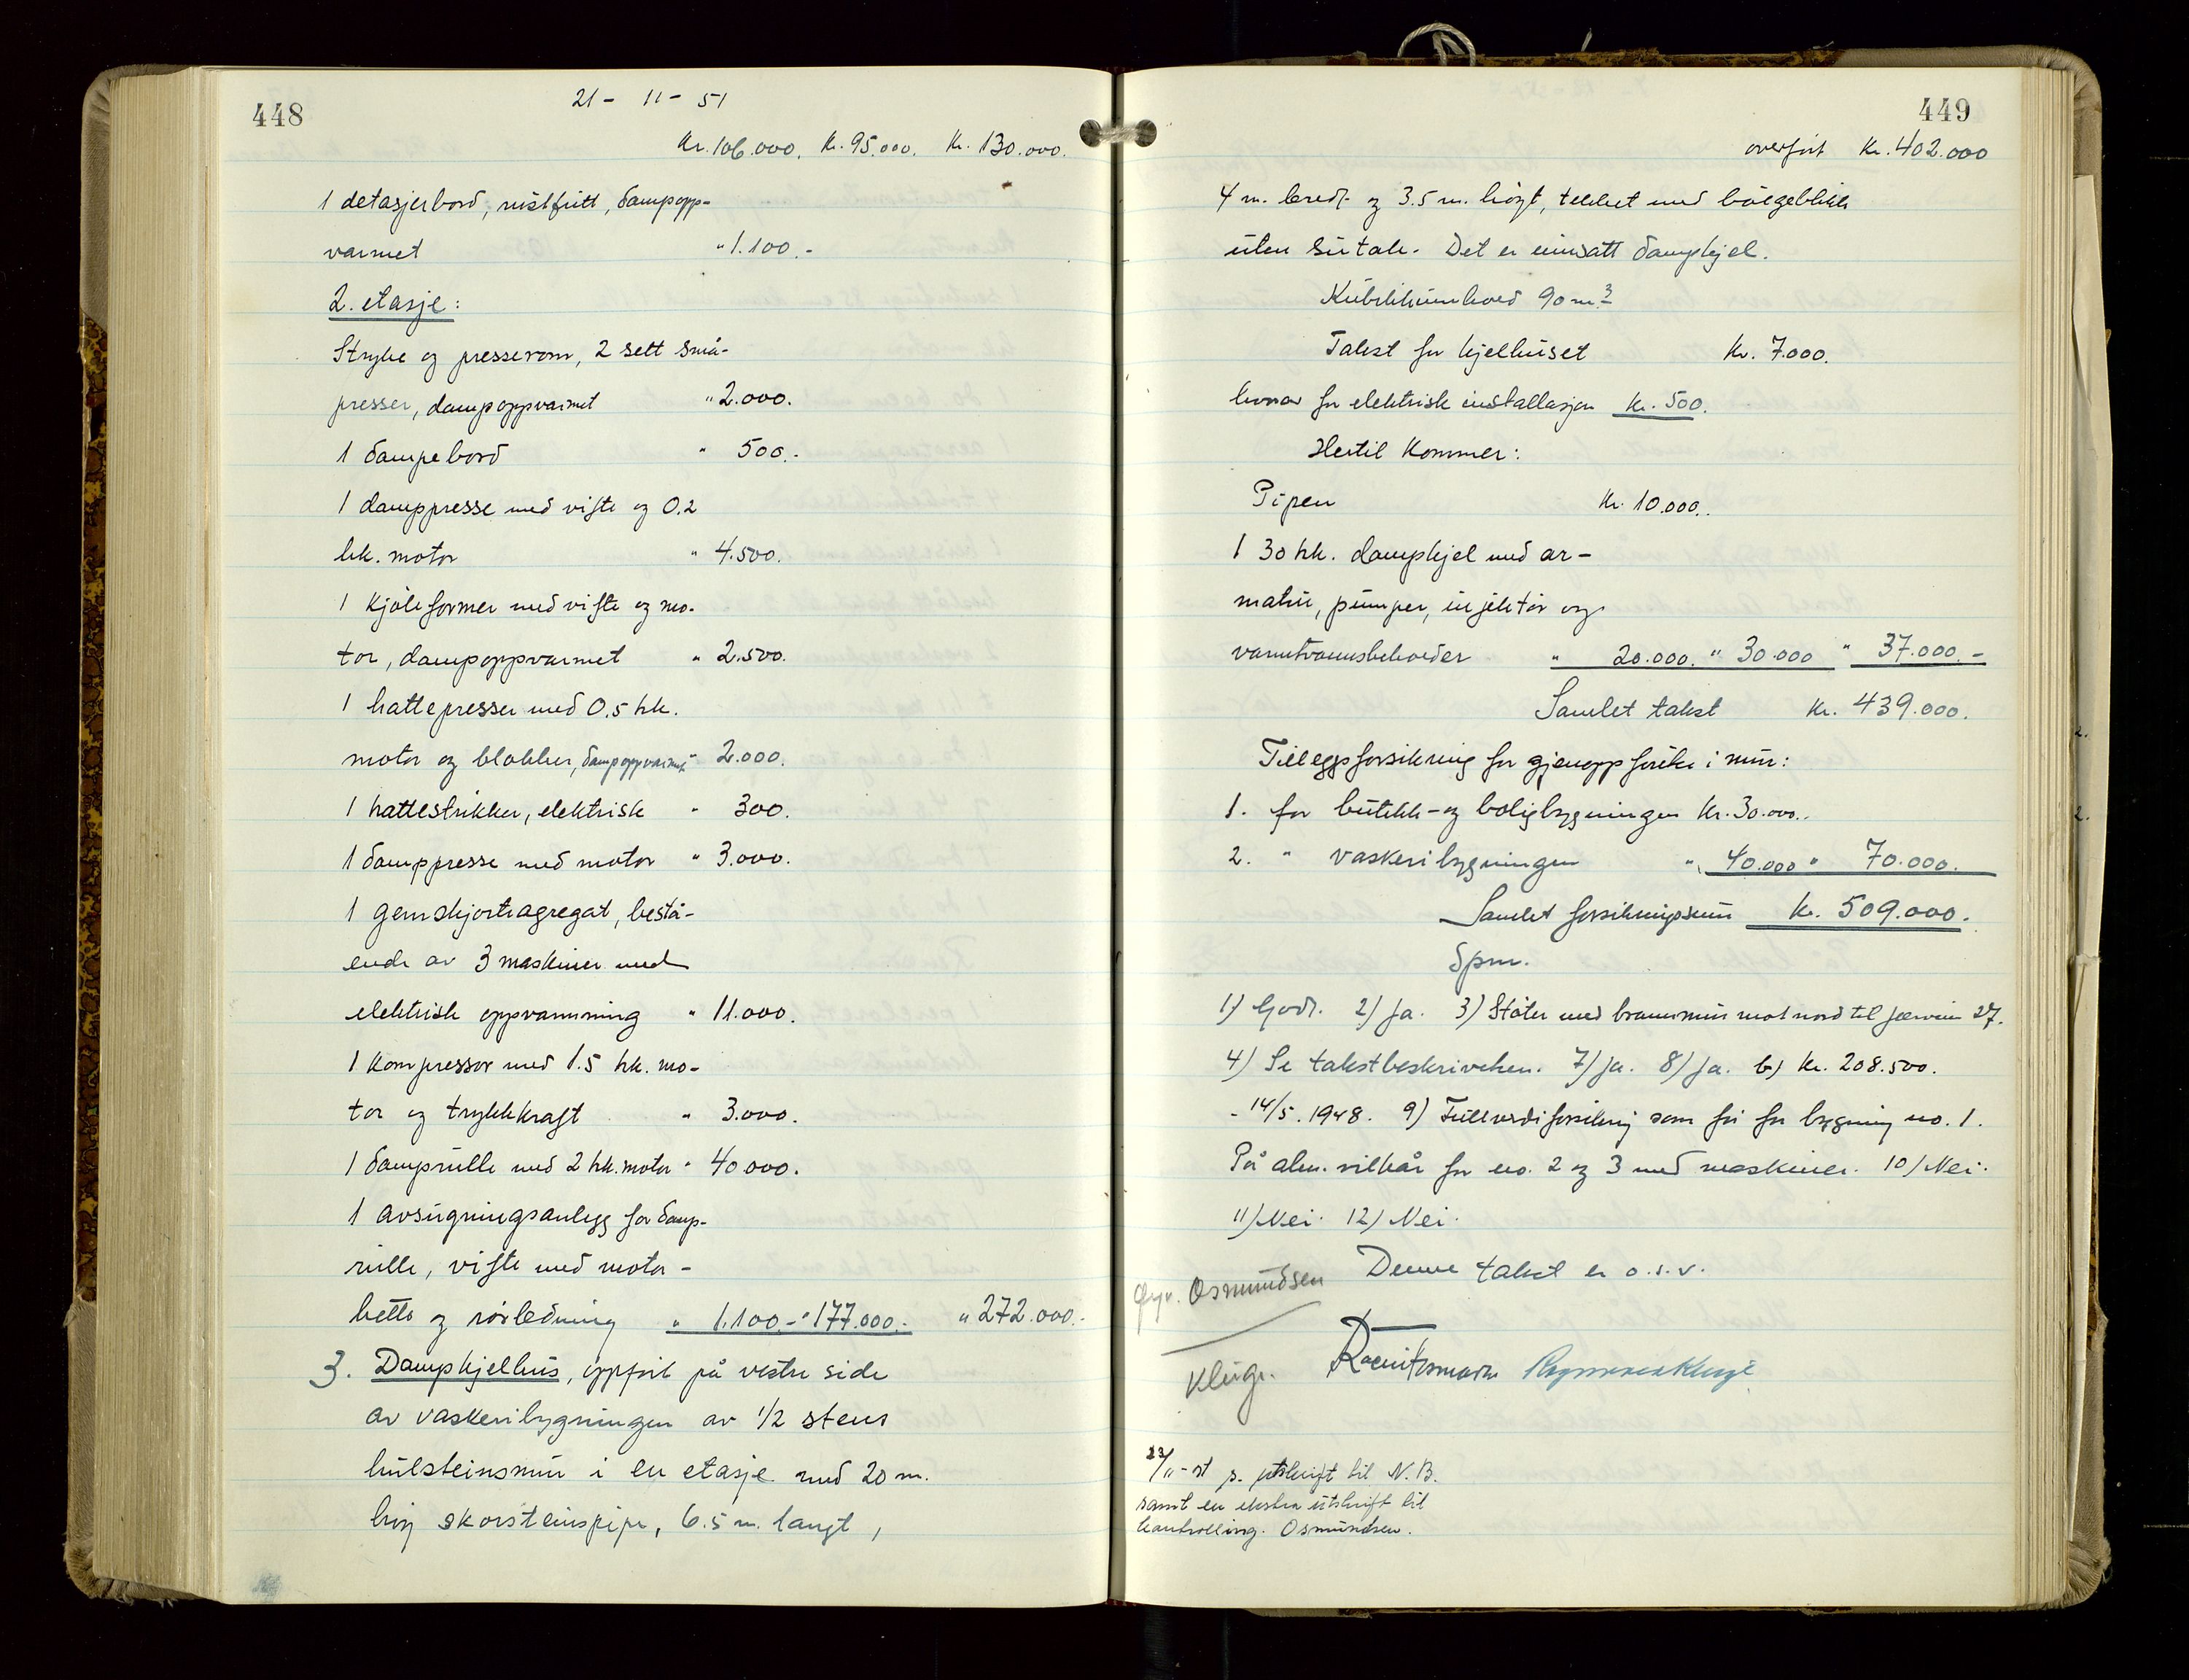 448
21 - 11 - 51
Kr. 106.000. Kr. 95.000. Kr. 130.000.
1 detasjerbord, rustfritt, dampopp-
varmet " 1.100.-
2. etasje:
Stryke og presserom, 2 sett små-
presser, dampoppvarmet " 2.000.
1 dampebord " 500.-
1 damppresse med vifte og 0.2
hk. motor " 4.500.
1 Kjoleformer med vifte og mo-
tor, dampoppvarmet " 2.500.
1 hattepresser med 0.5 hk.
motor og blokker, dampoppvarmet " 2.000.
1 hattestrikker, elektrisk " 300.
1 damppresse med motor " 3.000.
1 gemskjorteagregat, bestå-
ende av 3 maskiner med
elektrisk oppvarmning " 11.000.
1 Kompressor med 1.5 hk. mo-
tor og trykkkraft " 3.000.
1 damprulle med 2 hk. motor " 40.000.
1 avsugningsanlegg for damp-
rulle, vifte med motor -
hette og rörledning " 1.100.- " 177.000.- " 272.000.-
3. Dampkjelhus, oppfört på vestre side
av vaskeribygningen av 1/2 stens
hulsteinsmur i en etasje med 20 m.
höy skorsteinspipe, 6.5 m. langt,
449
overfört Kr. 402.000
4 m. bredt og 3.5 m. höyt, tekket med bölgeblikk
uten sutak. Det er innsatt dampkjel.
Kubikkinnhold 90 m3
Takst for kjelhuset Kr. 7.000.
hvorav for elektrisk installasjon Kr. 500.
Hertil Kommer:
Pipen Kr. 10.000.
1 30 hk. dampkjel med ar-
matur, pumper, injektor og
varmtvannsbeholder " 20.000. " 30.000 " 37.000.-
Samlet takst Kr. 439.000.
Tilleggsforsikring for gjenoppförelse i mur:
1. for butikk- og boligbygningen Kr. 30.000.
2. " vaskeribygningen " 40.000 " 70.000.
Samlet forsikringssum Kr. 509.000.
Spm.
1) Godt. 2) Ja. 3) Stöter med brannmur mot nord til 27.
4) Se takstbeskrivelsen. 7) Ja. 8) Ja. b) Kr. 208.500.
- 14/5. 1948. 9) Fullverdiforsikring som för for bygning no. 1.
På alm. vilkår for no. 2 og 3 med maskiner. 10) Nei.
11) Nei. 12) Nei.
Denne takst er o.s.v.
Osmundsen
Kluge.
23/11-51 p. utskrift til N.B.
samt en ekstra utskrift til
Osmundsen.